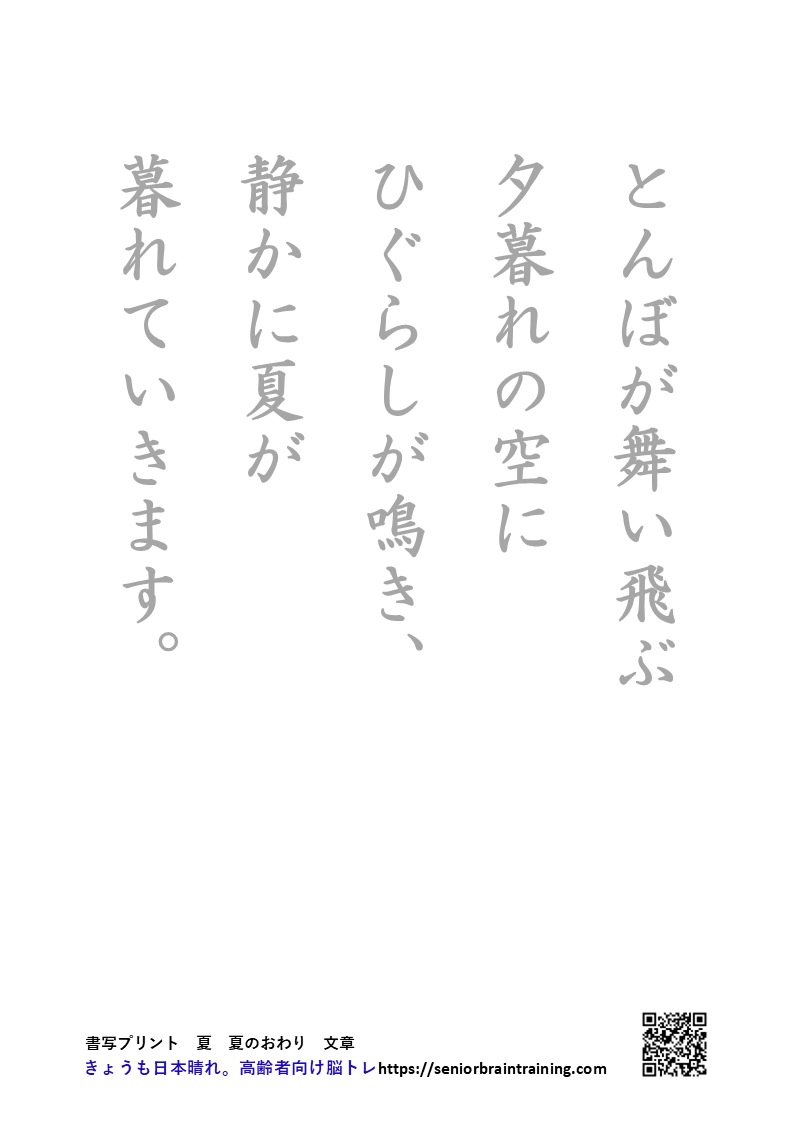 とんぼが舞い飛ぶ
夕暮れの空に
ひぐらしが鳴き、
静かに夏が
暮れていきます。
書写プリント　夏　夏のおわり　文章
きょうも日本晴れ。高齢者向け脳トレhttps://seniorbraintraining.com